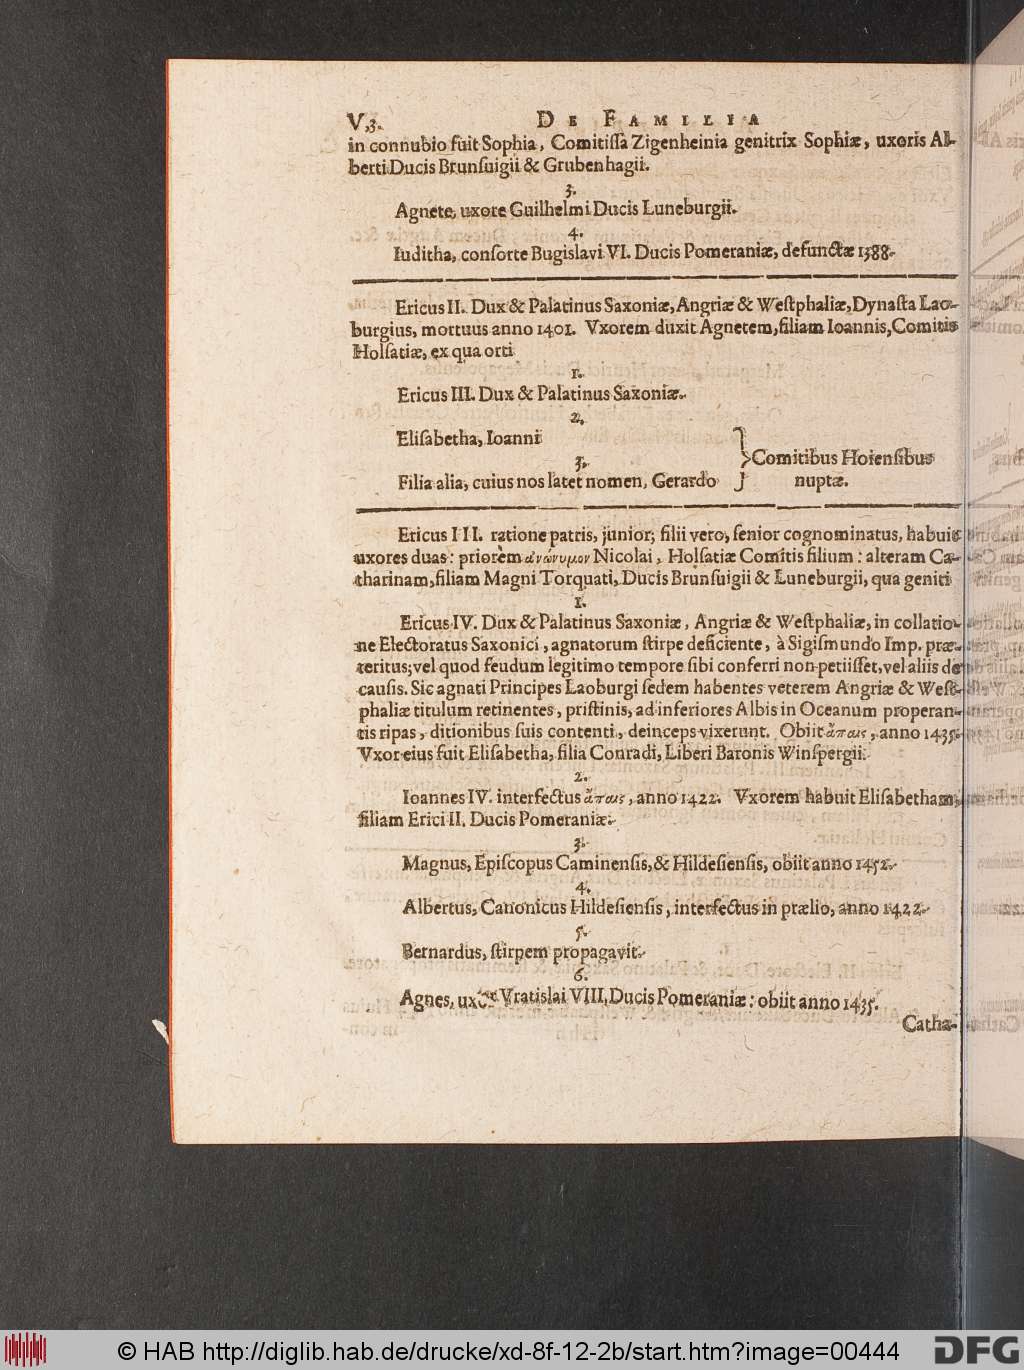 V,3. DE FAMILIA
in connubio fuit Sophia, Comitiſſa Zigenheinia genitrix Sophiæ, uxoris Al-
berti Ducis Brunſuigii & Grubenhagii.
3.
Agnete, uxore Guilhelmi Ducis Luneburgii.
4.
Iuditha, conſorte Bugislavi VI. Ducis Pomeraniæ, defunctæ 1388.
Ericus II. Dux & Palatinus Saxoniæ, Angriæ & Weſtphaliæ, Dynaſta Lao-
burgius, mortuus anno 1401. Vxorem duxit Agnetem, filiam Ioannis, Comitis
Holſatiæ, ex qua orti
1.
Ericus III. Dux & Palatinus Saxoniæ.
2.
Eliſabetha, Ioanni
3.
Comitibus Hoienſibus
Filia alia, cuius nos latet nomen, Gerardo } nuptæ.
Ericus III. ratione patris, junior; filii vero, ſenior cognominatus, habuit
uxores duas: priorem ἀνώνυμον Nicolai, Holſatiæ Comitis filium: alteram Ca-
tharinam, filiam Magni Torquati, Ducis Brunſuigii & Luneburgii, qua geniti
1.
Ericus IV. Dux & Palatinus Saxoniæ, Angriæ & Weſtphaliæ, in collatio-
ne Electoratus Saxonici, agnatorum ſtirpe deficiente, à Sigiſmundo Imp. præ-
teritus; vel quod feudum legitimo tempore ſibi conferri non petiiſſet, vel aliis de
cauſis. Sic agnati Principes Laoburgi ſedem habentes veterem Angriæ & Weſt-
phaliæ titulum retinentes, priſtinis, ad inferiores Albis in Oceanum properan-
tis ripas, ditionibus ſuis contenti, deinceps vixerunt. Obiit ἄπαις, anno 1435.
Vxor eius fuit Eliſabetha, filia Conradi, Liberi Baronis Winſpergii.
2.
Ioannes IV. interfectus ἄπαις, anno 1422. Vxorem habuit Eliſabetham,
filiam Erici II. Ducis Pomeraniæ.
3.
Magnus, Epiſcopus Caminenſis, & Hildeſienſis, obiit anno 1452.
4.
Albertus, Canonicus Hildeſienſis, interfectus in prælio, anno 1422.
5.
Bernardus, ſtirpem propagavit.
6.
Agnes, uxor Vratislai VIII. Ducis Pomeraniæ: obiit anno 1435.
Catha-
© HAB http://diglib.hab.de/drucke/xd-8f-12-2b/start.htm?image=00444
DFG